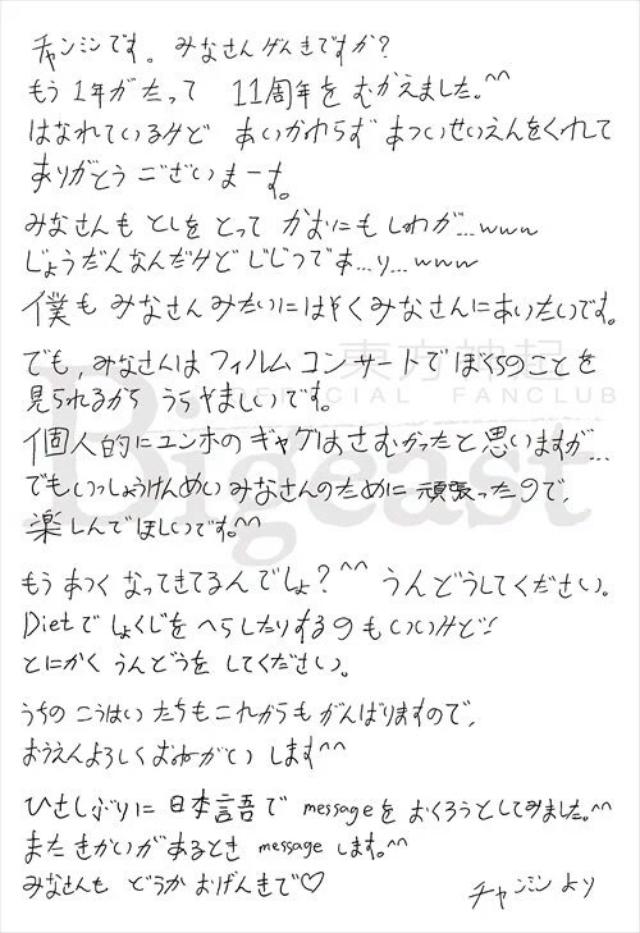 チャンミンです。みなさんげんきですか?
もう1年がたって 11周年を むかえました。^^
はなれているけど あいかわらず あついせいえんをくれて
ありがとう ございまーす。
みなさんも としを とって かおにも しわが...www
じょうだんなんだけど じじつでよ...り...www
僕も みなさんみたいにはやくみなさんにあいたいです。
でも, みなさんは フィルム コンサートで ぼくらのことを
見られるから うらやましいです。
個人的に ユンホの ギャグは さむかったと 思いますが...
でもいっしょうけんめい みなさんのために 頑張ったので,
楽しんで ほしいです。^^
もう あつく なってきてるんでしょ?^^ うんどうしてください。
Dietで しょくじを へらしたりするのもいいけど!
とにかく うんどうを してください。
うちの こうはい たちも これからも がんばりますので,
おうえんよろしくおねがい します^^
ひさしぶりに 日本言吾で messageを おくろうとしてみました。^^
また きかいが あるとき message します。^^
みなさんも どうか おげんきで♡
チャンミン より
東方神起
OFFICIAL FANCLUB
Bigeast